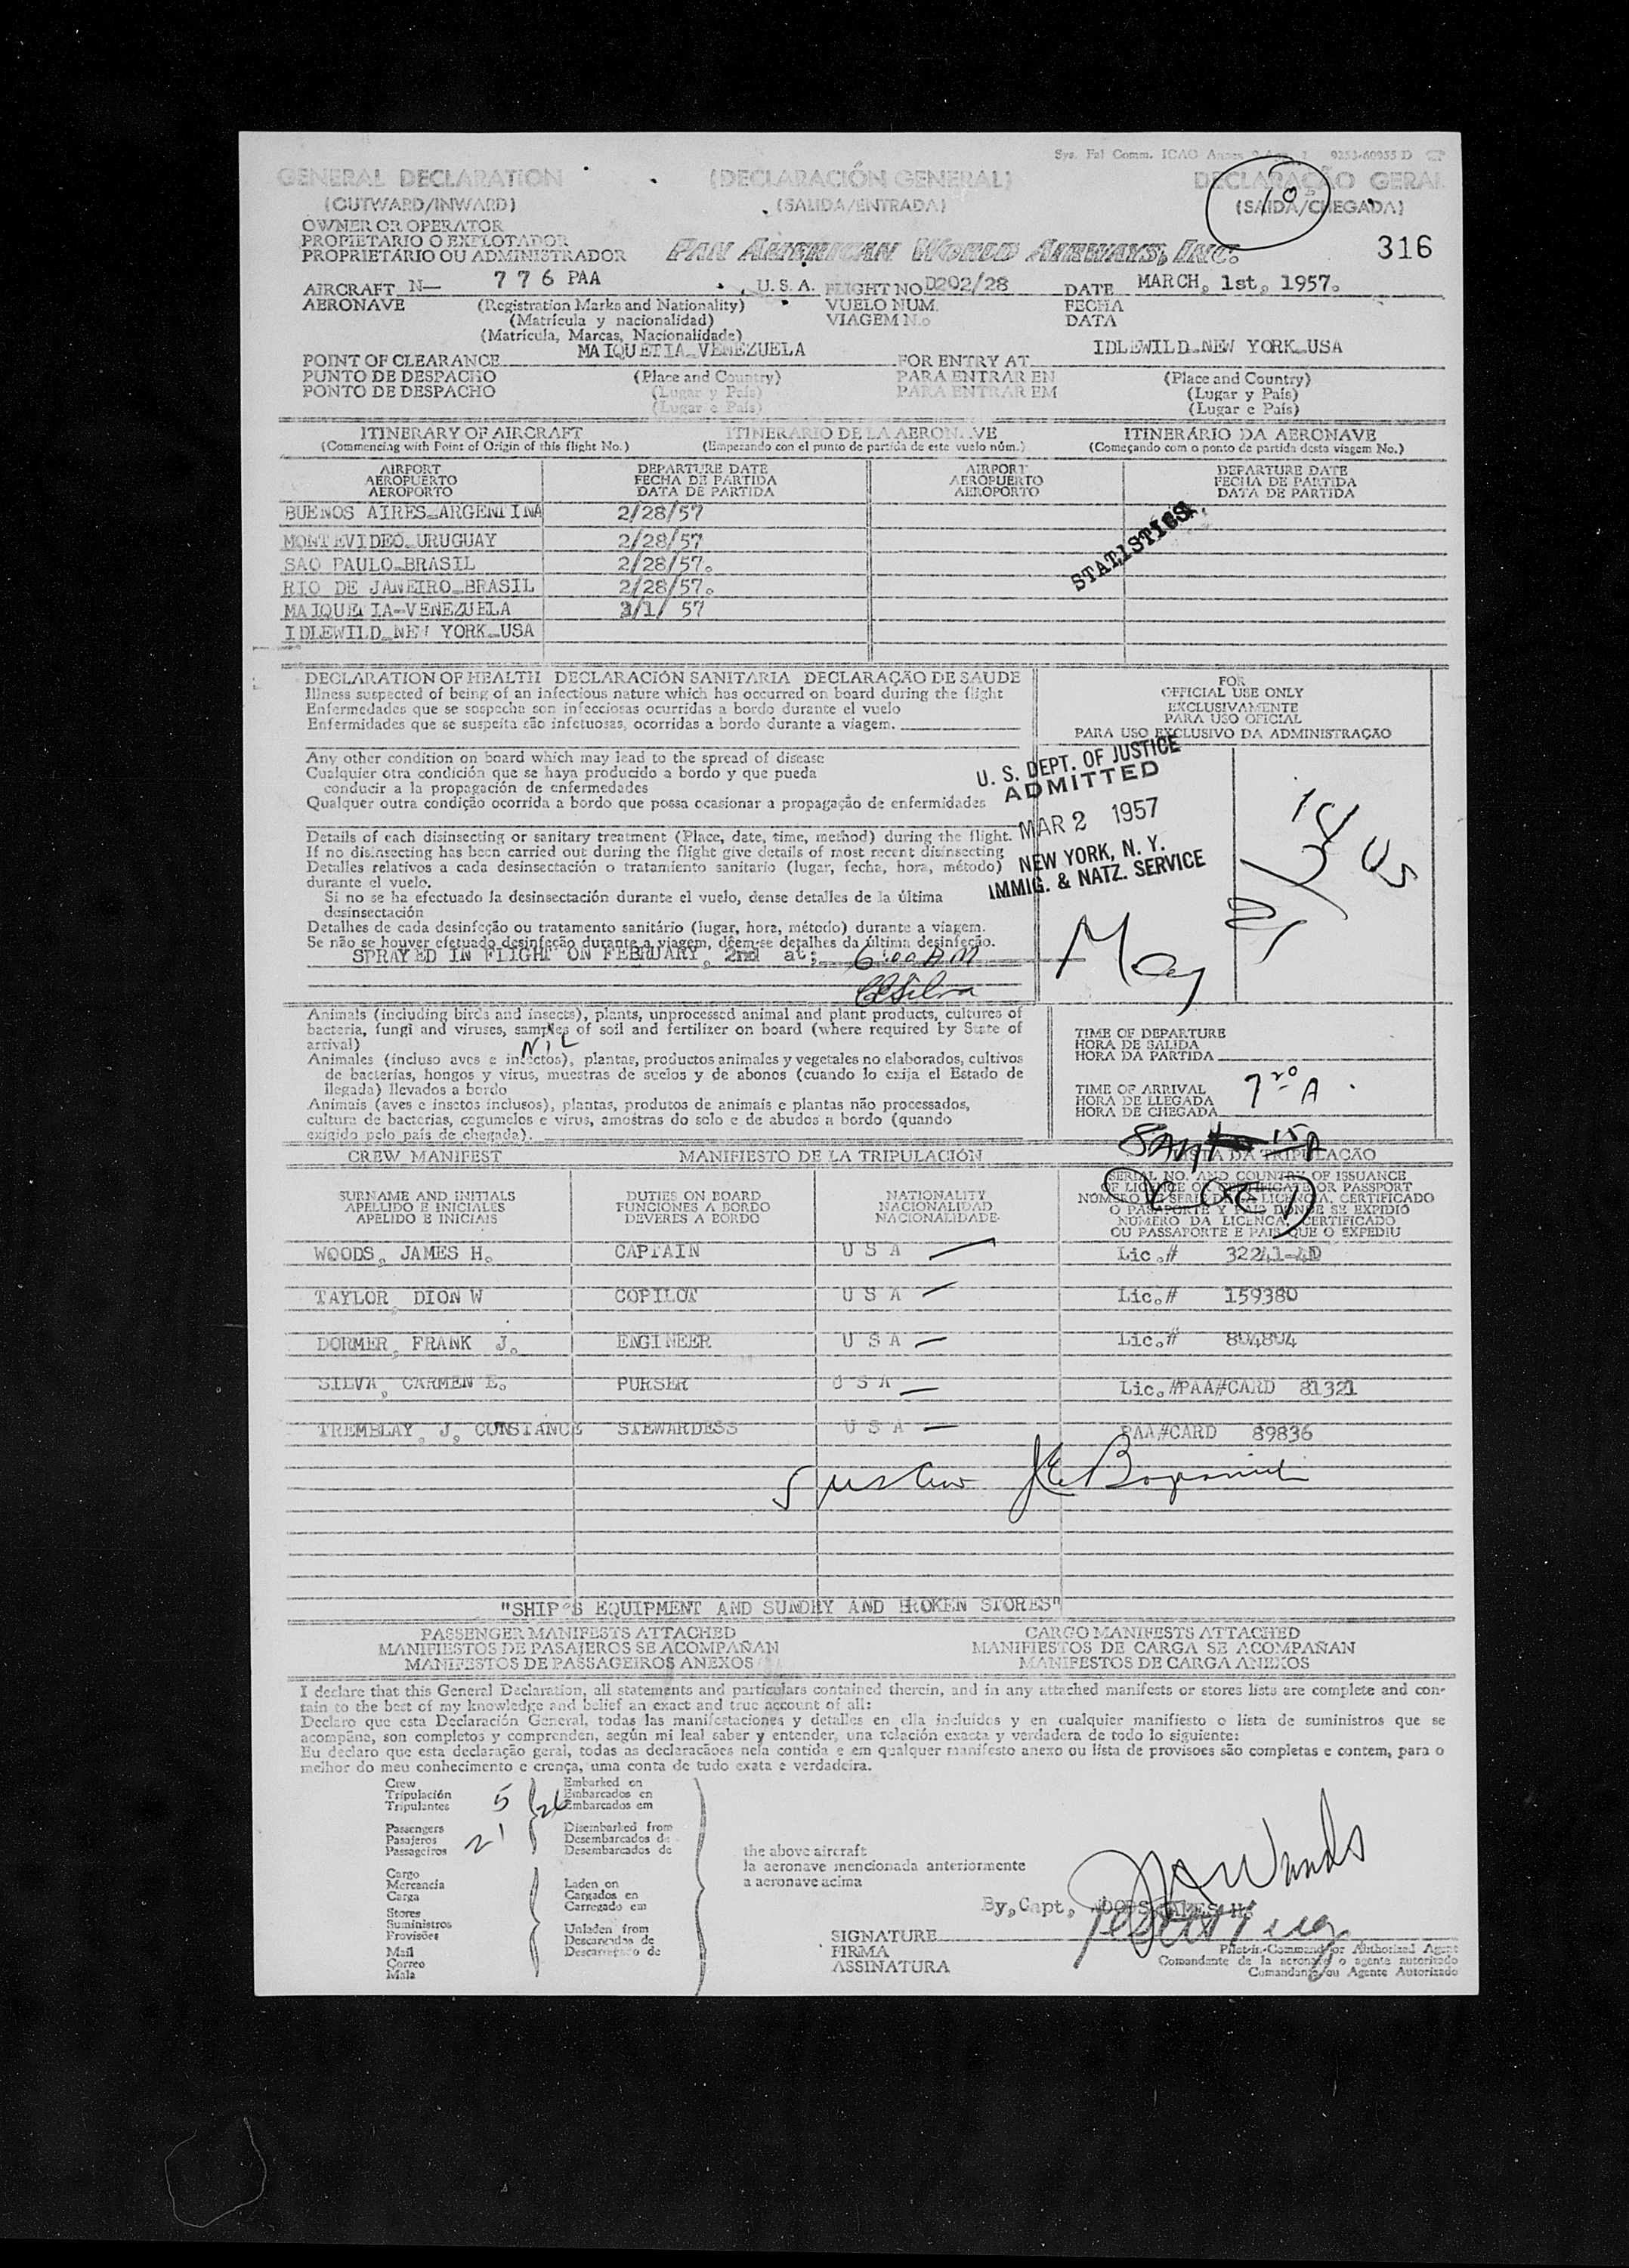 Sys. Fal Comm. ICAO Annex 9 App. 1 9253-60955 D
GENERAL DECLARATION (DECLARACIÓN GENERAL) DECLARAÇÃO GERAL
(OUTWARD/INWARD) (SALIDA/ENTRADA) (SAIDA/CHEGADA)
10
OWNER OR OPERATOR
PROPIETARIO O EXPLOTADOR
PROPRIETÁRIO OU ADMINISTRADOR PAN AMERICAN WORLD AIRWAYS, INC. 316
AIRCRAFT N— 7 7 6 PAA U.S.A. FLIGHT NO. D202/28 DATE MARCH, 1st, 1957.
AERONAVE (Registration Marks and Nationality) VUELO NUM. FECHA
(Matrícula y nacionalidad) VIAGEM N.o DATA
(Matrícula, Marcas, Nacionalidade)
MAIQUETIA-VENEZUELA IDLEWILD-NEW YORK-USA
POINT OF CLEARANCE FOR ENTRY AT
PUNTO DE DESPACHO (Place and Country) PARA ENTRAR EN (Place and Country)
PONTO DE DESPACHO (Lugar y País) PARA ENTRAR EM (Lugar y País)
(Lugar e País) (Lugar e País)
ITINERARY OF AIRCRAFT ITINERARIO DE LA AERON. .VE ITINERÁRIO DA AERONAVE
(Commencing with Point of Origin of this flight No.) (Empezando con el punto de partida de este vuelo núm.) (Começando com o ponto de partida desta viagem No.)
AIRPORT DEPARTURE DATE AIRPORT DEPARTURE DATE
AEROPUERTO FECHA DE PARTIDA AEROPUERTO FECHA DE PARTIDA
AEROPORTO DATA DE PARTIDA AEROPORTO DATA DE PARTIDA
BUENOS AIRES-ARGENTINA 2/28/57
MONTEVIDEO-URUGUAY 2/28/57
SAO PAULO-BRASIL 2/28/57.
RIO DE JANEIRO-BRASIL 2/28/57.
MAIQUE IA-VENEZUELA 3/1/ 57
IDLEWILD-NEW YORK-USA
STATISTICS.
DECLARATION OF HEALTH DECLARACIÓN SANITARIA DECLARAÇÃO DE SAUDE
Illness suspected of being of an infectious nature which has occurred on board during the flight
Enfermedades que se sospecha son infecciosas ocurridas a bordo durante el vuelo
Enfermidades que se suspeita são infetuosas, ocorridas a bordo durante a viagem.
FOR
OFFICIAL USE ONLY
EXCLUSIVAMENTE
PARA USO OFICIAL
PARA USO EXCLUSIVO DA ADMINISTRAÇÃO
Any other condition on board which may lead to the spread of disease
Cualquier otra condición que se haya producido a bordo y que pueda
conducir a la propagación de enfermedades
Qualquer outra condição ocorrida a bordo que possa ocasionar a propagação de enfermidades
U. S. DEPT. OF JUSTICE
ADMITTED
MAR 2 1957
NEW YORK, N. Y.
IMMIG. & NATZ. SERVICE
Details of each disinsecting or sanitary treatment (Place, date, time, method) during the flight.
If no disinsecting has been carried out during the flight give details of most recent disinsecting
Detalles relativos a cada desinsectación o tratamiento sanitario (lugar, fecha, hora, método)
durante el vuelo.
Si no se ha efectuado la desinsectación durante el vuelo, dense detalles de la última
desinsectación
Detalhes de cada desinfeção ou tratamento sanitário (lugar, hora, método) durante a viagem.
Se não se houver efetuado desinfeção durante a viagem, dêem-se detalhes da última desinfeção.
SPRAYED IN FLIGHT ON FEBRUARY, 2nd at; 6:00 A.M
CESilva
Animals (including birds and insects), plants, unprocessed animal and plant products, cultures of
bacteria, fungi and viruses, samples of soil and fertilizer on board (where required by State of
arrival) NIL
Animales (incluso aves e insectos), plantas, productos animales y vegetales no elaborados, cultivos
de bacterias, hongos y virus, muestras de suelos y de abonos (cuando lo exija el Estado de
llegada) llevados a bordo
Animais (aves e insetos inclusos), plantas, produtos de animais e plantas não processados,
cultura de bacterias, cogumelos e virus, amostras do solo e de abudos a bordo (quando
exigido pelo país de chegada).
TIME OF DEPARTURE
HORA DE SALIDA
HORA DA PARTIDA
TIME OF ARRIVAL
HORA DE LLEGADA 7 20 A
HORA DE CHEGADA
CREW MANIFEST MANIFIESTO DE LA TRIPULACIÓN LISTA DA TRIPULAÇÃO
SURNAME AND INITIALS DUTIES ON BOARD NATIONALITY
APELLIDO E INICIALES FUNCIONES A BORDO NACIONALIDAD
APELIDO E INICIAIS DEVERES A BORDO NACIONALIDADE
SERIAL NO. AND COUNTRY OF ISSUANCE
OF LICENCE OR CERTIFICATE OR PASSPORT
NÚMERO DE SERIE DE LA LICENCIA, CERTIFICADO
O PASAPORTE Y PAIS DONDE SE EXPIDIO
NÚMERO DA LICENCA, CERTIFICADO
OU PASSAPORTE E PAIS QUE O EXPEDIU
WOODS, JAMES H. CAPTAIN U S A Lic.# 32241-4D
TAYLOR, DION W COPILOT U S A Lic.# 159380
DORMER, FRANK J. ENGINEER U S A Lic.# 804804
SILVA, CARMEN E. PURSER U S A Lic.#PAA#CARD 81321
TREMBLAY, J, CONSTANCE STEWARDESS U S A PAA#CARD 89836
"SHIP'S EQUIPMENT AND SUNDRY AND BROKEN STORES"
PASSENGER MANIFESTS ATTACHED CARGO MANIFESTS ATTACHED
MANIFIESTOS DE PASAJEROS SE ACOMPAÑAN MANIFIESTOS DE CARGA SE ACOMPAÑAN
MANIFESTOS DE PASSAGEIROS ANEXOS MANIFESTOS DE CARGA ANEXOS
I declare that this General Declaration, all statements and particulars contained therein, and in any attached manifests or stores lists are complete and con-
tain to the best of my knowledge and belief an exact and true account of all:
Declaro que esta Declaración General, todas las manifestaciones y detalles en ella incluidos y en cualquier manifiesto o lista de suministros que se
acompaña, son completos y comprenden, según mi leal saber y entender, una relación exacta y verdadera de todo lo siguiente:
Eu declaro que esta declaração geral, todas as declaracãoes nela contida e em qualquer manifesto anexo ou lista de provisoes são completas e contem, para o
melhor do meu conhecimento e crença, uma conta de tudo exata e verdadeira.
Crew Embarked on
Tripulación 5 26 Embarcados en
Tripulantes Embarcados em
Passengers Disembarked from
Pasajeros 21 Desembarcados de
Passageiros Desembarcados de
the above aircraft
la aeronave mencionada anteriormente
a aeronave acima
Cargo
Mercancía Laden on
Carga Cargados en
Carregado em
Stores
Suministros Unladen from
Provisões Descargados de
Mail Descarregado de
Correo
Mala
JHWoods
By, Capt, WOODS, JAMES H.
SIGNATURE
FIRMA
ASSINATURA
Pilot-in-Command or Authorized Agent
Comandante de la aeronave o agente autorizado
Comandante ou Agente Autorizado